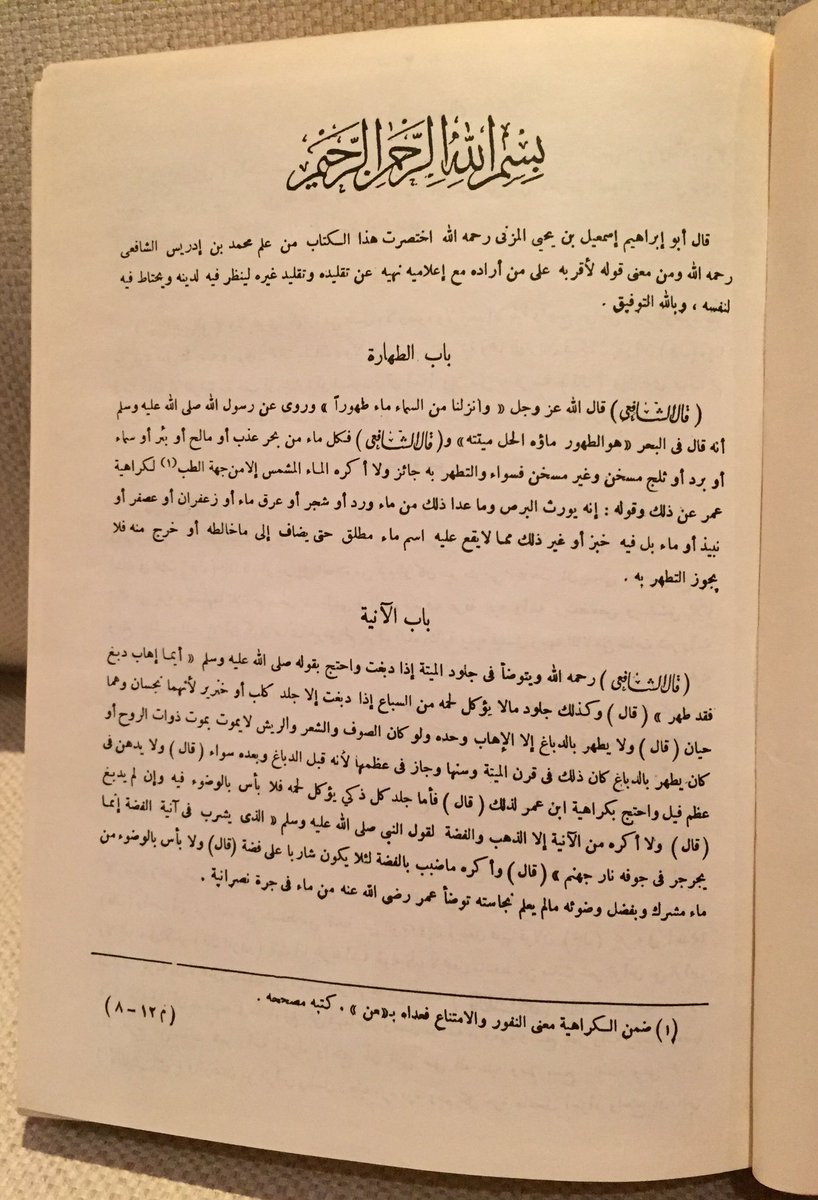 بسم الله الرحمن الرحيم
قال أبو إبراهيم إسمعيل بن يحيى المزنى رحمه الله اختصرت هذا الكتاب من علم محمد بن إدريس الشافعى
رحمه الله ومن معنى قوله لأقربه على من أراده مع إعلاميه نهيه عن تقليده وتقليد غيره لينظر فيه لدينه ويحتاط فيه
لنفسه ، وبالله التوفيق .
باب الطهارة
( قال الشافعى ) قال الله عز وجل « وأنزلنا من السماء ماء طهوراً » وروى عن رسول الله صلى الله عليه وسلم
أنه قال فى البحر «هو الطهور ماؤه الحل ميتته» و( قال الشافعى ) فكل ماء من بحر عذب أو مالح أو بئر أو سماء
أو برد أو ثلج مسخن وغير مسخن فسواء والتطهر به جائز ولا أكره الماء المشمس إلا من جهة الطب(١) لكراهية
عمر عن ذلك وقوله : إنه يورث البرص وما عدا ذلك من ماء ورد أو شجر أو عرق ماء أو زعفران أو عصفر أو
نبيذ أو ماء بل فيه خبز أو غير ذلك مما لا يقع عليه اسم ماء مطلق حتى يضاف إلى ما خالطه أو خرج منه فلا
يجوز التطهر به .
باب الآنية
( قال الشافعى ) رحمه الله ويتوضأ فى جلود الميتة إذا دبغت واحتج بقوله صلى الله عليه وسلم « أيما إهاب دبغ
فقد طهر » ( قال ) وكذلك جلود مالا يؤكل لحمه من السباع إذا دبغت إلا جلد كلب أو خنزير لأنهما نجسان وهما
حيان ( قال ) ولا يطهر بالدباغ إلا الإهاب وحده ولو كان الصوف والشعر والريش لا يموت بموت ذوات الروح أو
كان يطهر بالدباغ كان ذلك فى قرن الميتة وسنها وجاز فى عظمها لأنه قبل الدباغ وبعده سواء ( قال ) ولا يدهن فى
عظم فيل واحتج بكراهية ابن عمر لذلك ( قال ) فأما جلد كل ذكي يؤكل لحمه فلا بأس بالوضوء فيه وإن لم يدبغ
( قال ) ولا أكره من الآنية إلا الذهب والفضة لقول النبى صلى الله عليه وسلم « الذى يشرب فى آنية الفضة إنما
يجرجر فى جوفه نار جهنم » ( قال ) وأكره ماضبب بالفضة لئلا يكون شاربا على فضة (قال) ولا بأس بالوضوء من
ماء مشرك وبفضل وضوئه مالم يعلم نجاسته توضأ عمر رضى الله عنه من ماء فى جرة نصرانية .
(١) ضمن الكراهية معنى النفور والامتناع فعداه بـ«عن » . كتبه مصححه .
(م ١٢ - ٨)